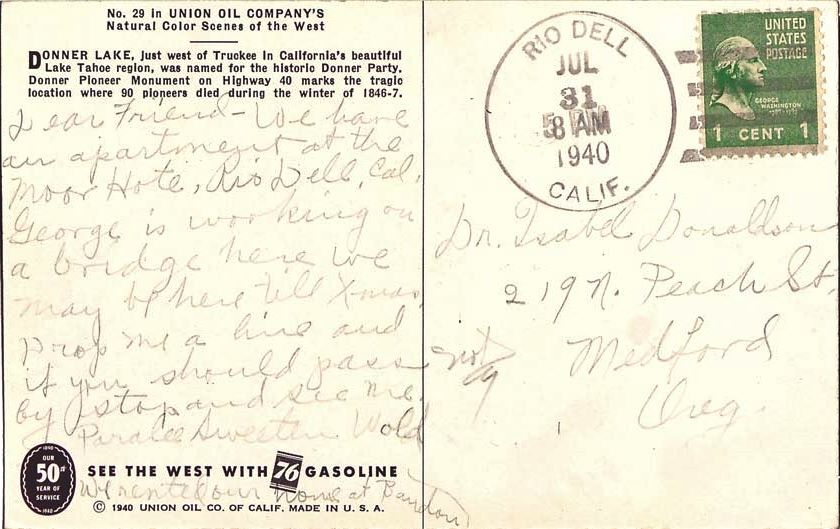 No. 29 in UNION OIL COMPANY'S
Natural Color Scenes of the West
DONNER LAKE, just west of Truckee in California's beautiful
Lake Tahoe region, was named for the historic Donner Party.
Donner Pioneer Monument on Highway 40 marks the tragic
location where 90 pioneers died during the winter of 1846-7.
Dear Friend - We have
an apartment at the
Moor Hote, Rio Dell, Cal,
George is working on
a bridge here we
may be here till X-mas,
Drop me a line and
if you should pass
by stop and see me.
Paralee Sweeten Wold
We rented our home at Bandon
1890
OUR
50th
YEAR OF
SERVICE
1940
SEE THE WEST WITH 76 GASOLINE
© 1940 UNION OIL CO. OF CALIF. MADE IN U. S. A.
RIO DELL
JUL
31
8 AM
1940
CALIF.
UNITED
STATES
POSTAGE
GEORGE
WASHINGTON
1789-1797
1 CENT 1
Dr. Isabel Donaldson
219 N. Peach St,
Medford
Oreg.